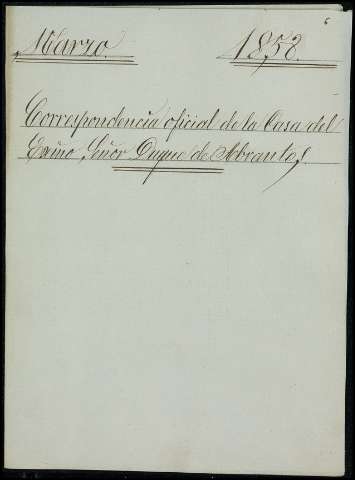 6
Marzo. 1858.
Correspondencia oficial de la Casa del
Exmo Señor Duque de Abrantes.